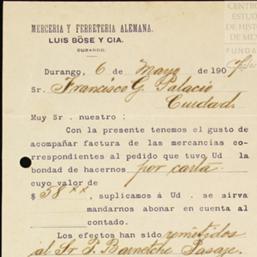 CENTRO
ESTUD
DE HIST
DE M
FUNDA
MERCERIA Y FERRETERIA ALEMANA.
LUIS BÖSE Y CIA.
DURANGO.
Durango, 6 de Mayo de 1907
Sr. Francisco G. Palacio
Ciudad.
Muy Sr. nuestro:
Con la presente tenemos el gusto de
acompañar factura de las mercancías co-
rrespondientes al pedido que tuvo Ud la
bondad de hacernos por carta
cuyo valor de
$ 58 xx, suplicamos á Ud. se sirva
mandarnos abonar en cuenta al
contado.
Los efectos han sido remitidos
al Sr. P. Barnetche Pasaje.